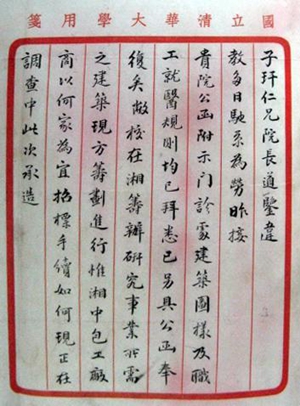 國立清華大學用箋
子玕仁兄院長道鑒違
教多日馳系為勞昨接
貴院公函附示門診處建築圖樣及職
工就醫規則均已拜悉已另具公函奉
復矣敝校在湘籌辦研究事業所需
之建築現方籌劃進行惟湘中包工廠
商以何家為宜招標手續如何現正在
調查中此次承造